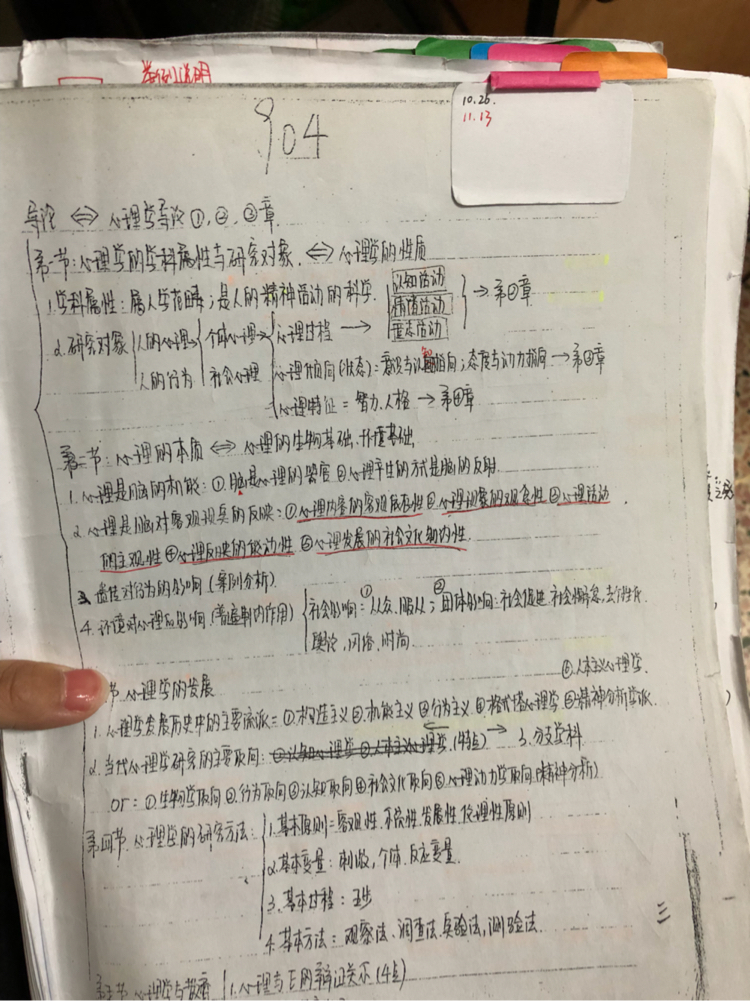 举例说明
10.26.
11.13
904
导论 ⇔ 心理学导论①,②,③章.
第一节:心理学的学科属性与研究对象. ⇔ 心理学的性质
1.学科属性:属人学范畴;是人的精神活动的科学.
认知活动
情感活动
意志活动
→ 第②章
2.研究对象
人的心理→
人的行为
个体心理→
社会心理
心理过程 →
心理倾向(状态)=意识与认知倾向;态度与动力倾向 → 第③章
心理特征=智力,人格 → 第④章
第二节:心理的本质 ⇔ 心理的生物基础.环境基础
1.心理是脑的机能:①.脑是心理的器官 ②心理产生的方式是脑的反射.
2.心理是人脑对客观现实的反映:①.心理内容的客观反应性 ②.心理现象的观念性 ③.心理活动
的主观性 ④心理反映的能动性 ⑤心理发展的社会文化制约性.
3.遗传对行为的影响(案例分析)
4.环境对心理的影响(普遍制约作用)
社会影响:①从众,服从;②团体的影响:社会促进.社会懈怠,去个性化
舆论,网络,时尚.
节.心理学的发展
⑥.人本主义心理学.
1.心理学发展历史中的主要流派=①.构造主义 ②.机能主义 ③行为主义.④格式塔心理学 ⑤精神分析学派.
2.当代心理学研究的主要取向:①认知心理学 ②人本主义心理学(4特点) → 3.分支学科
or:①.生物学取向 ②.行为取向 ③认知取向 ④社会文化取向 ⑤心理动力学取向(精神分析)
第四节.心理学的研究方法:
1.基本原则=客观性.系统性.发展性.伦理性原则
2.基本变量:刺激,个体.反应变量.
3.基本过程:五步
4.基本方法:观察法.调查法.实验法,测验法.
三
第五节 心理学与教育
1.心理与教育的辩证关系(4点)